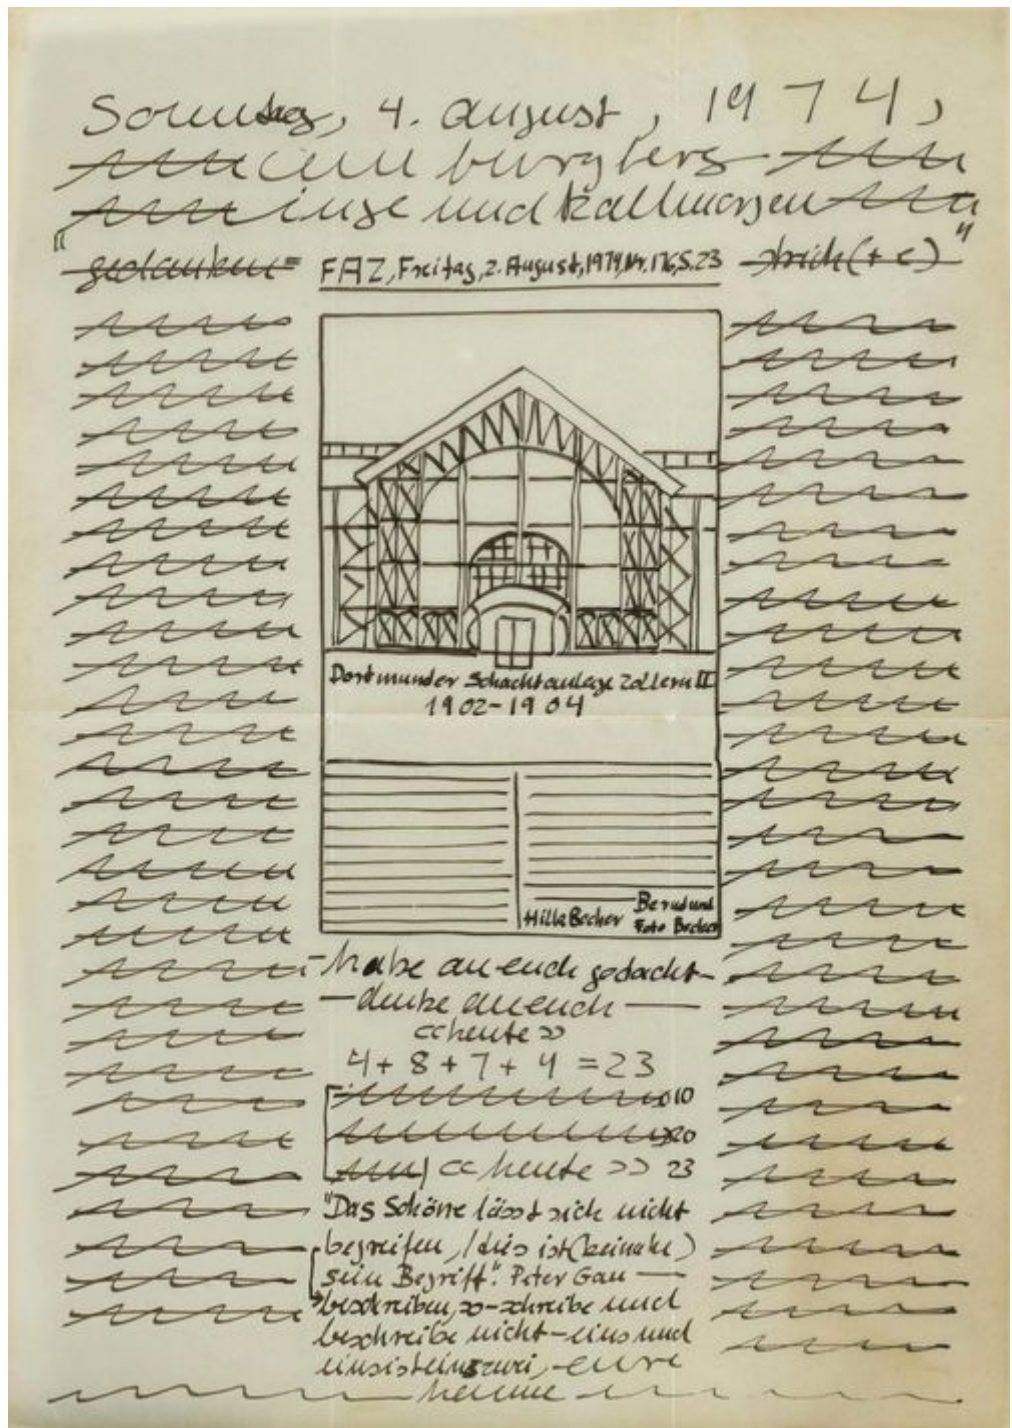 Sonntag, 4. august, 1974,
am burgberg
inge und kallmorgen
"gedanken= FAZ, Freitag, 2. August, 1974, Nr. 176, S. 23 strich (+e)"
Dortmunder Schachtanlage Zollern II
1902-1904
Hilla Becher
Bernd und
Foto Becher
- habe an euch gedacht -
- denke an euch -
<<heute>>
4+8+7+4=23
10
20
<<heute>> 23
"Das Schöne lässt sich nicht
begreifen, / dies ist (beinahe)
sein Begriff". Peter Gan -
beschreiben, so - schreibe und
beschreibe nicht - eins und
eins ist eins zwei, - eure
hanne